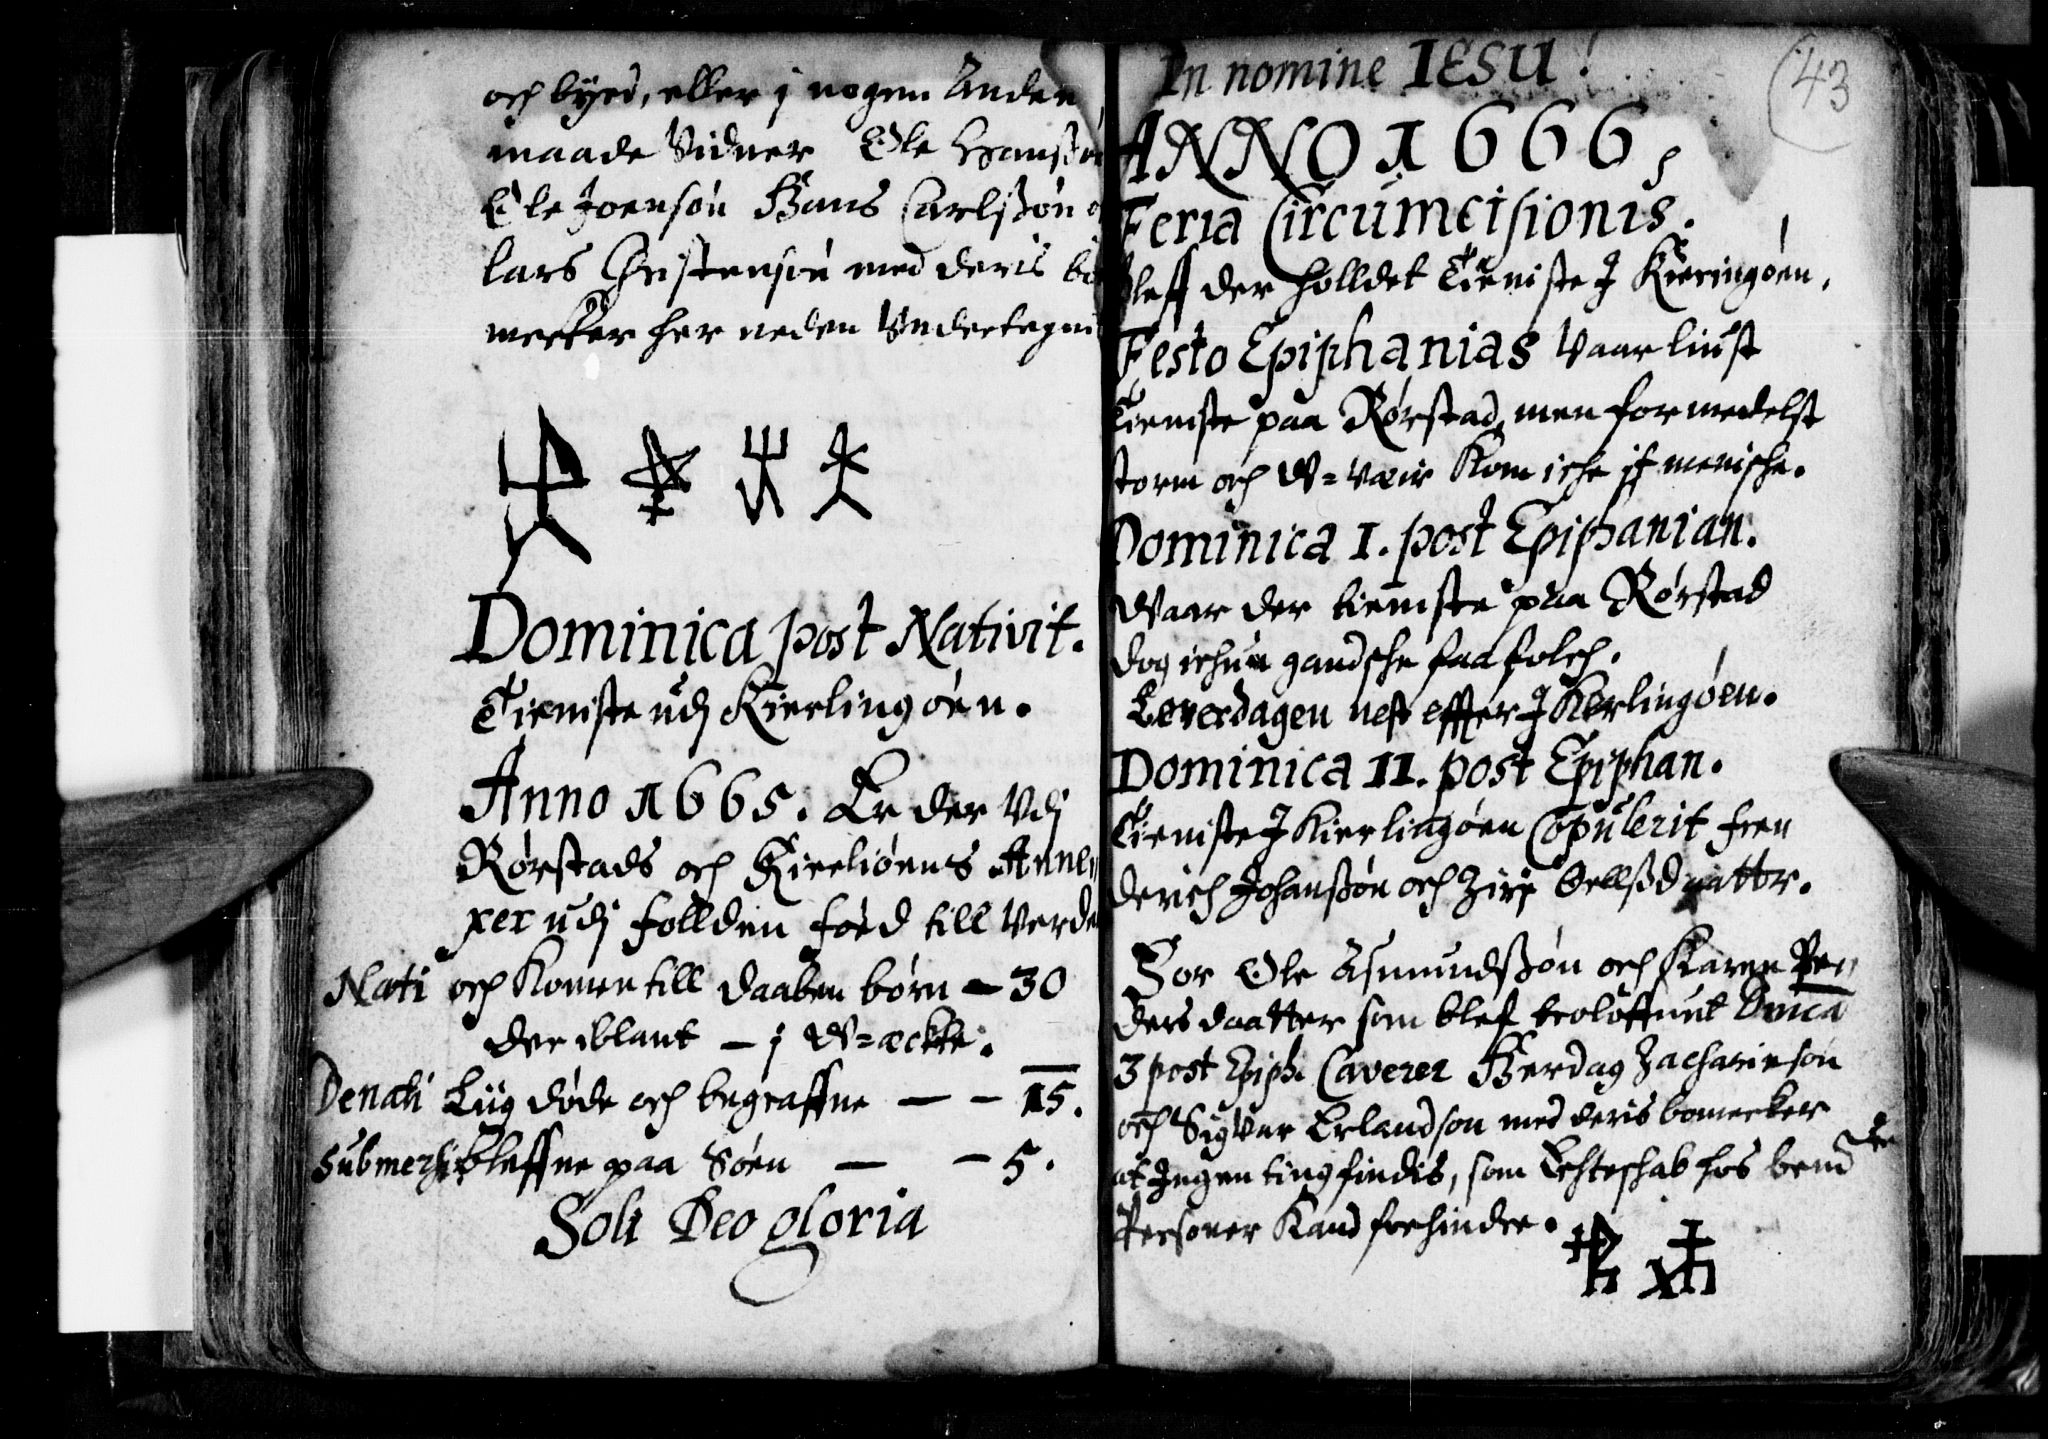 och byes, eller j nogen Anden
maade Vidner Ole Hanssøn
Ole Joensøn Hans Carlssøn
Lars Christensøn med deris
mercker her neden Undertegnit
Dominica post Nativit.
Tieniste udj Kierlingøen.
Anno 1665. Er der Udj
Rørstads och Kierliøens Annex
xer udj Follden fød till Verden
Nati och Komen till Daaben børn – 30
der iblant – j W=æckte.
Denati Liig døde och begraffne — – 15.
Submersi bleffne paa Søen — – 5.
Soli Deo gloria
(43
In nomine IESU!
ANNO 1666,
Feria Circumcisionis.
Bleff der holldet Tieniste J Kieringøen.
Festo Epiphanias Vaar liust
Tieniste paa Rørstad, men formedelst
storm och W=vær Kom iche if menische.
Dominica I. post Epiphanian.
Waar der tieniste paa Rørstad
dog ichun gandsche faa folch.
Løverdagen nest effter J Kerlingøen.
Dominica II. post Epiphan.
Tieniste J Kierlingøen Copulerit Fren
derich Johanssøn och Zirj
For Ole Asmundssøn och Karen Pe
ders daatter som blef troloffuut Dnica
3 post Epiph. Caverer Herdag Zachariesøn
och Sigver Erlandsøn med deris bomercker
at Ingen ting findis, som Echteschab hos bem te
Personer Kand forhindre.